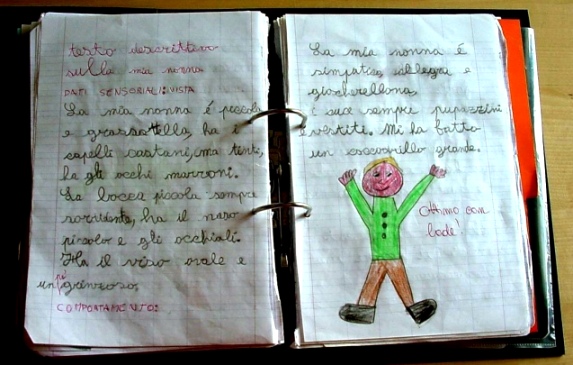 testo descrittivo
sulla mia nonna
DATI SENSORIALI: VISTA
La mia nonna é piccola
e grassottella, ha i
capelli castani, ma tinti,
ha gli occhi marroni.
La bocca piccola sempre
sorridente, ha il naso
piccolo e gli occhiali.
Ha il viso ovale e
un pó grinzoso,
COMPORTAMENTO:
La mia nonna é
simpatica, allegra e
giocherellona,
i suoi sempre pupazzini
vestite. Mi ha fatto
un coccodrillo grande.
Ottimo con
lode!